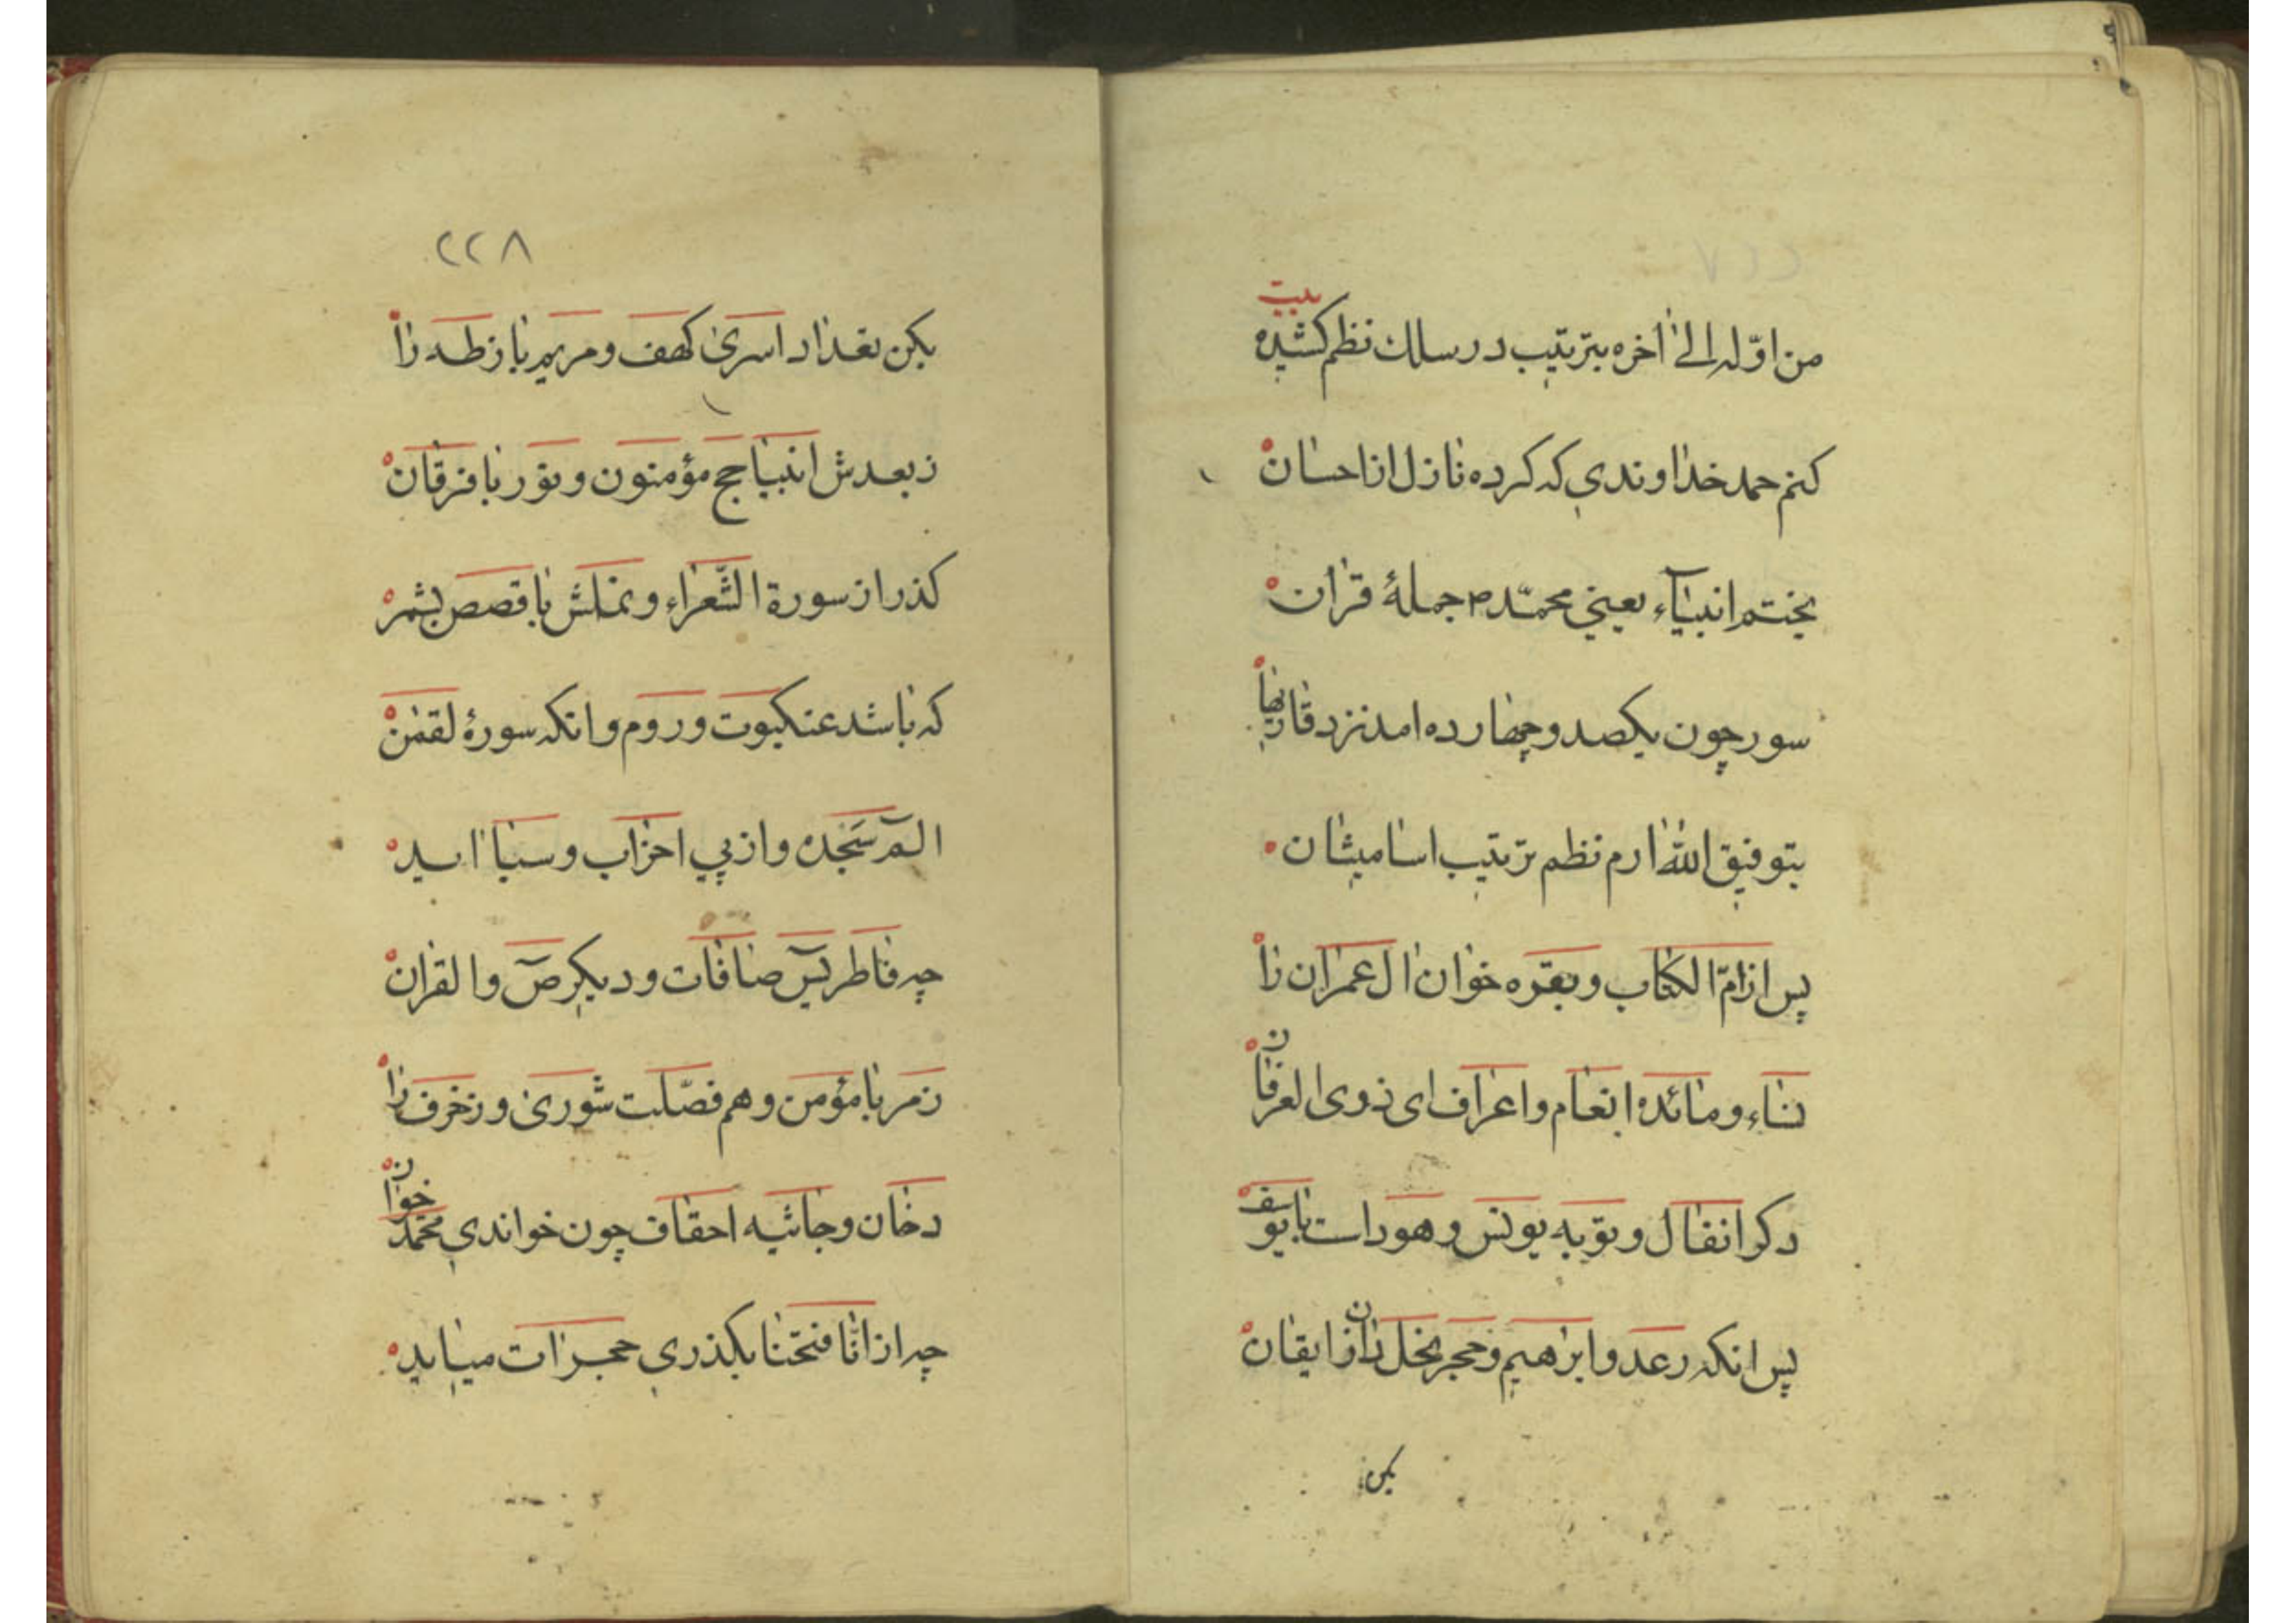 من اوّله الی اخره بترتیب در سلك نظم كشیده
بیت
كنم حمد خداوندی كه كرده نازل از احسان
بختم انبیاء یعنی محمّد ص جملهٔ قران
سور چون یكصد و چهارده امد نزد قاریها
بتوفیق الله ارم نظم ترتیب اسامیشان
پس از امّ الكتاب و بقره خوان ال عمران را
نساء و مائده انعام و اعراف ای ذوی العرفان
دكر انفال و توبه یونس و هود است با یوسف
پس انكه رعد و ابرهیم و حجر نحل دان از ایقان
بكن
٢٢٨
بكن تعداد اسری كهف و مریم باز طه را
ز بعدش انبیا حج مؤمنون و نور با فرقان
كذر از سورة الشّعراء و نملش با قصص بشمر
كه باشد عنكبوت و روم وانكه سورهٔ لقمن
الم سَجده و از پی احزاب و سبا اید
چه فاطر یس صافات و دیكر ص والقران
زمر با مؤمن و هم فصّلت شوری و زخرف را
دخان و جاثیه احقاف چون خواندی محمّد خوان
چه از انّا فتحنا بكذری حجرات میاید